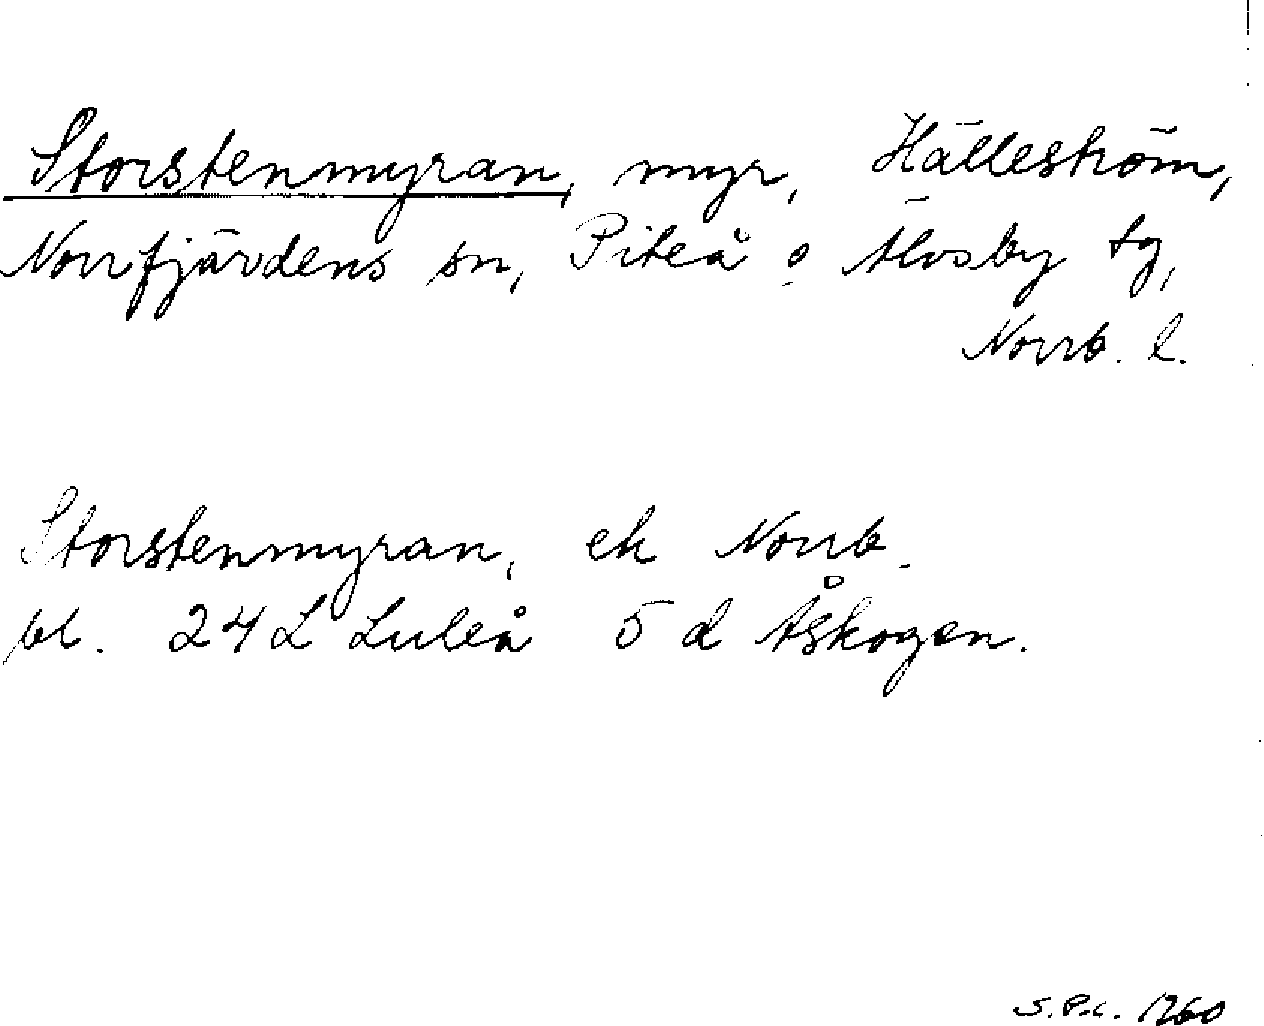 Storstenmyran, myr, Hälleström,
Norrfjärdens sn, Piteå o Älvsby tg,
Norrb. l.
Storstenmyran, ek Norrb.
bl. 24 L Luleå 5 d Åskogen.
1260